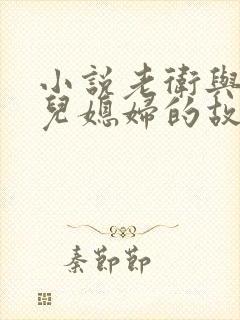 小說老衛與
兒媳婦的故
秦節節